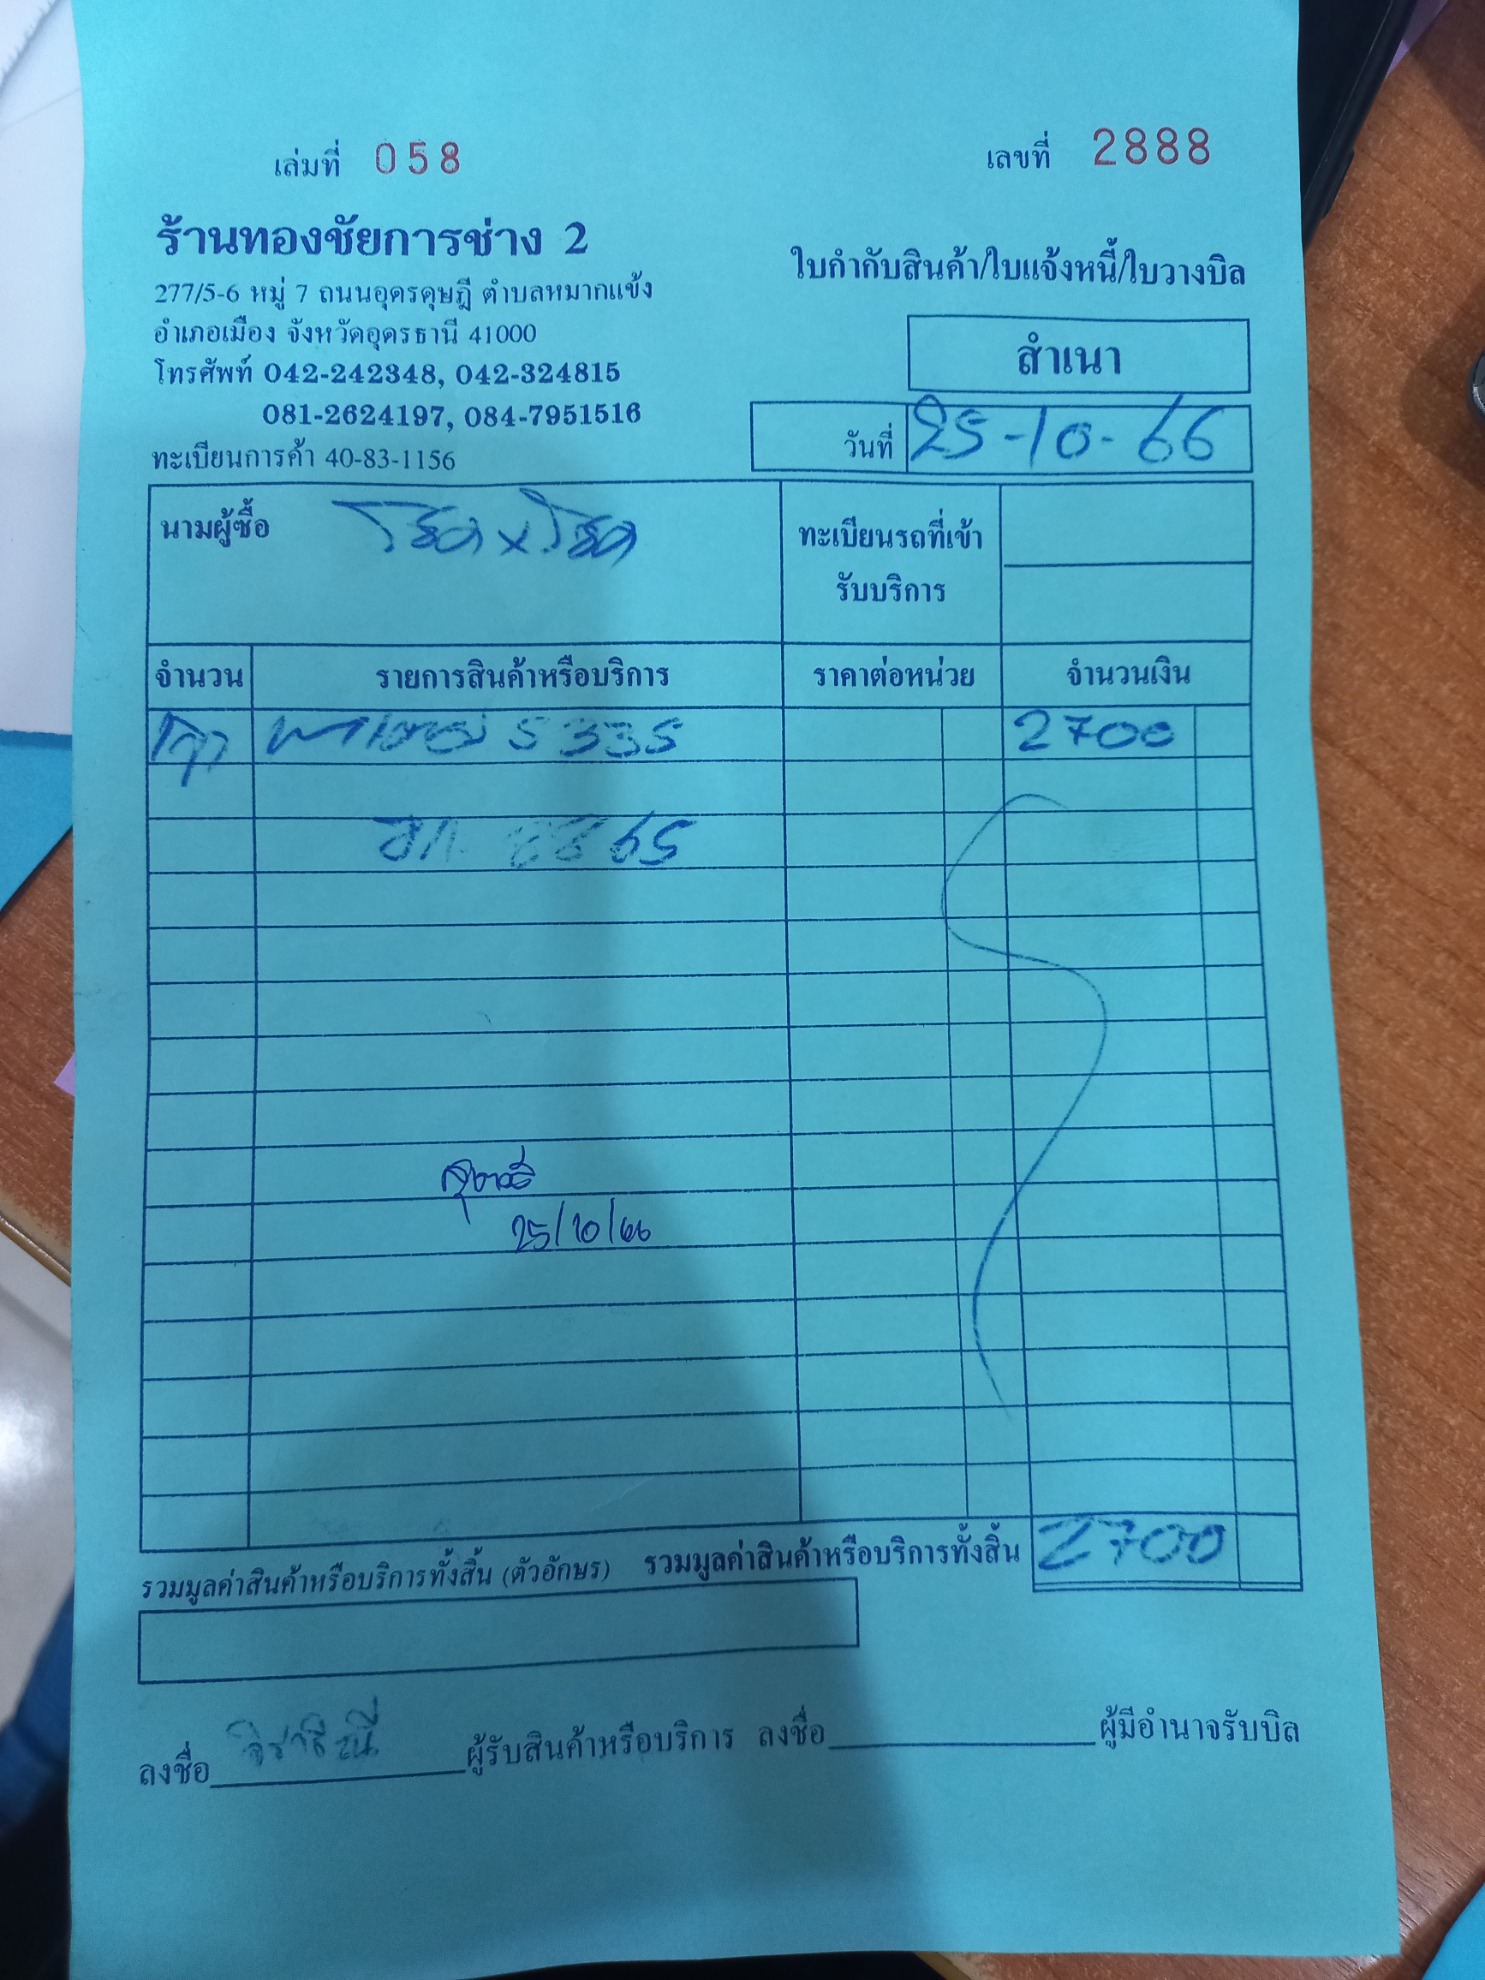 เล่มที่ 058
เลขที่ 2888
ร้านทองชัยการช่าง 2
277/5-6 หมู่ 7 ถนนอุดรดุษฎี ตำบลหมากแข้ง
อำเภอเมือง จังหวัดอุดรธานี 41000
โทรศัพท์ 042-242348, 042-324815
081-2624197, 084-7951516
ทะเบียนการค้า 40-83-1156
ใบกำกับสินค้า/ใบแจ้งหนี้/ใบวางบิล
สำเนา
วันที่ 25-10-66
นามผู้ซื้อ
ทะเบียนรถที่เข้า
รับบริการ
จำนวน รายการสินค้าหรือบริการ ราคาต่อหน่วย จำนวนเงิน
5335 2700
65
25/10/66
รวมมูลค่าสินค้าหรือบริการทั้งสิ้น (ตัวอักษร) รวมมูลค่าสินค้าหรือบริการทั้งสิ้น 2700
ลงชื่อ ผู้รับสินค้าหรือบริการ ลงชื่อ ผู้มีอำนาจรับบิล